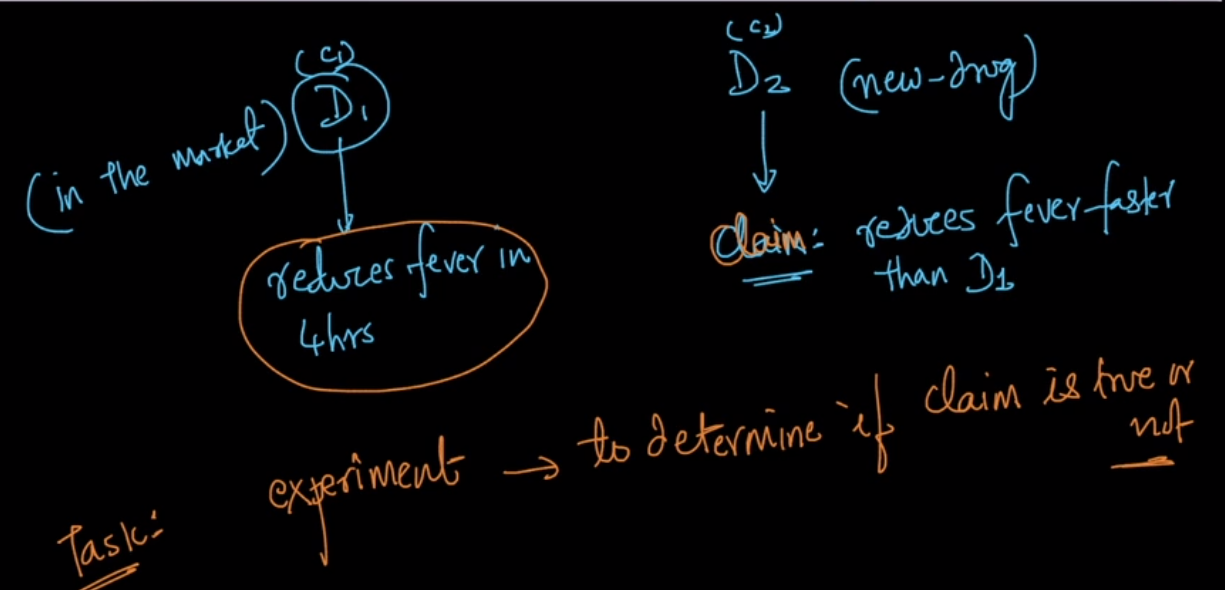 (C1)
(in the market) D1
reduces fever in
4hrs
(C2)
D2 (new-drug)
Claim: reduces fever faster
than D1
Task: experiment → to determine if claim is true or
not